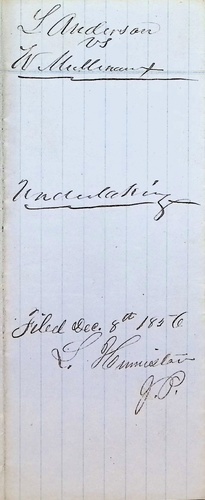 L Anderson
vs
W Mullinaux
Undertaking
Filed Dec. 8th 1856
L. Humiston
J.P.